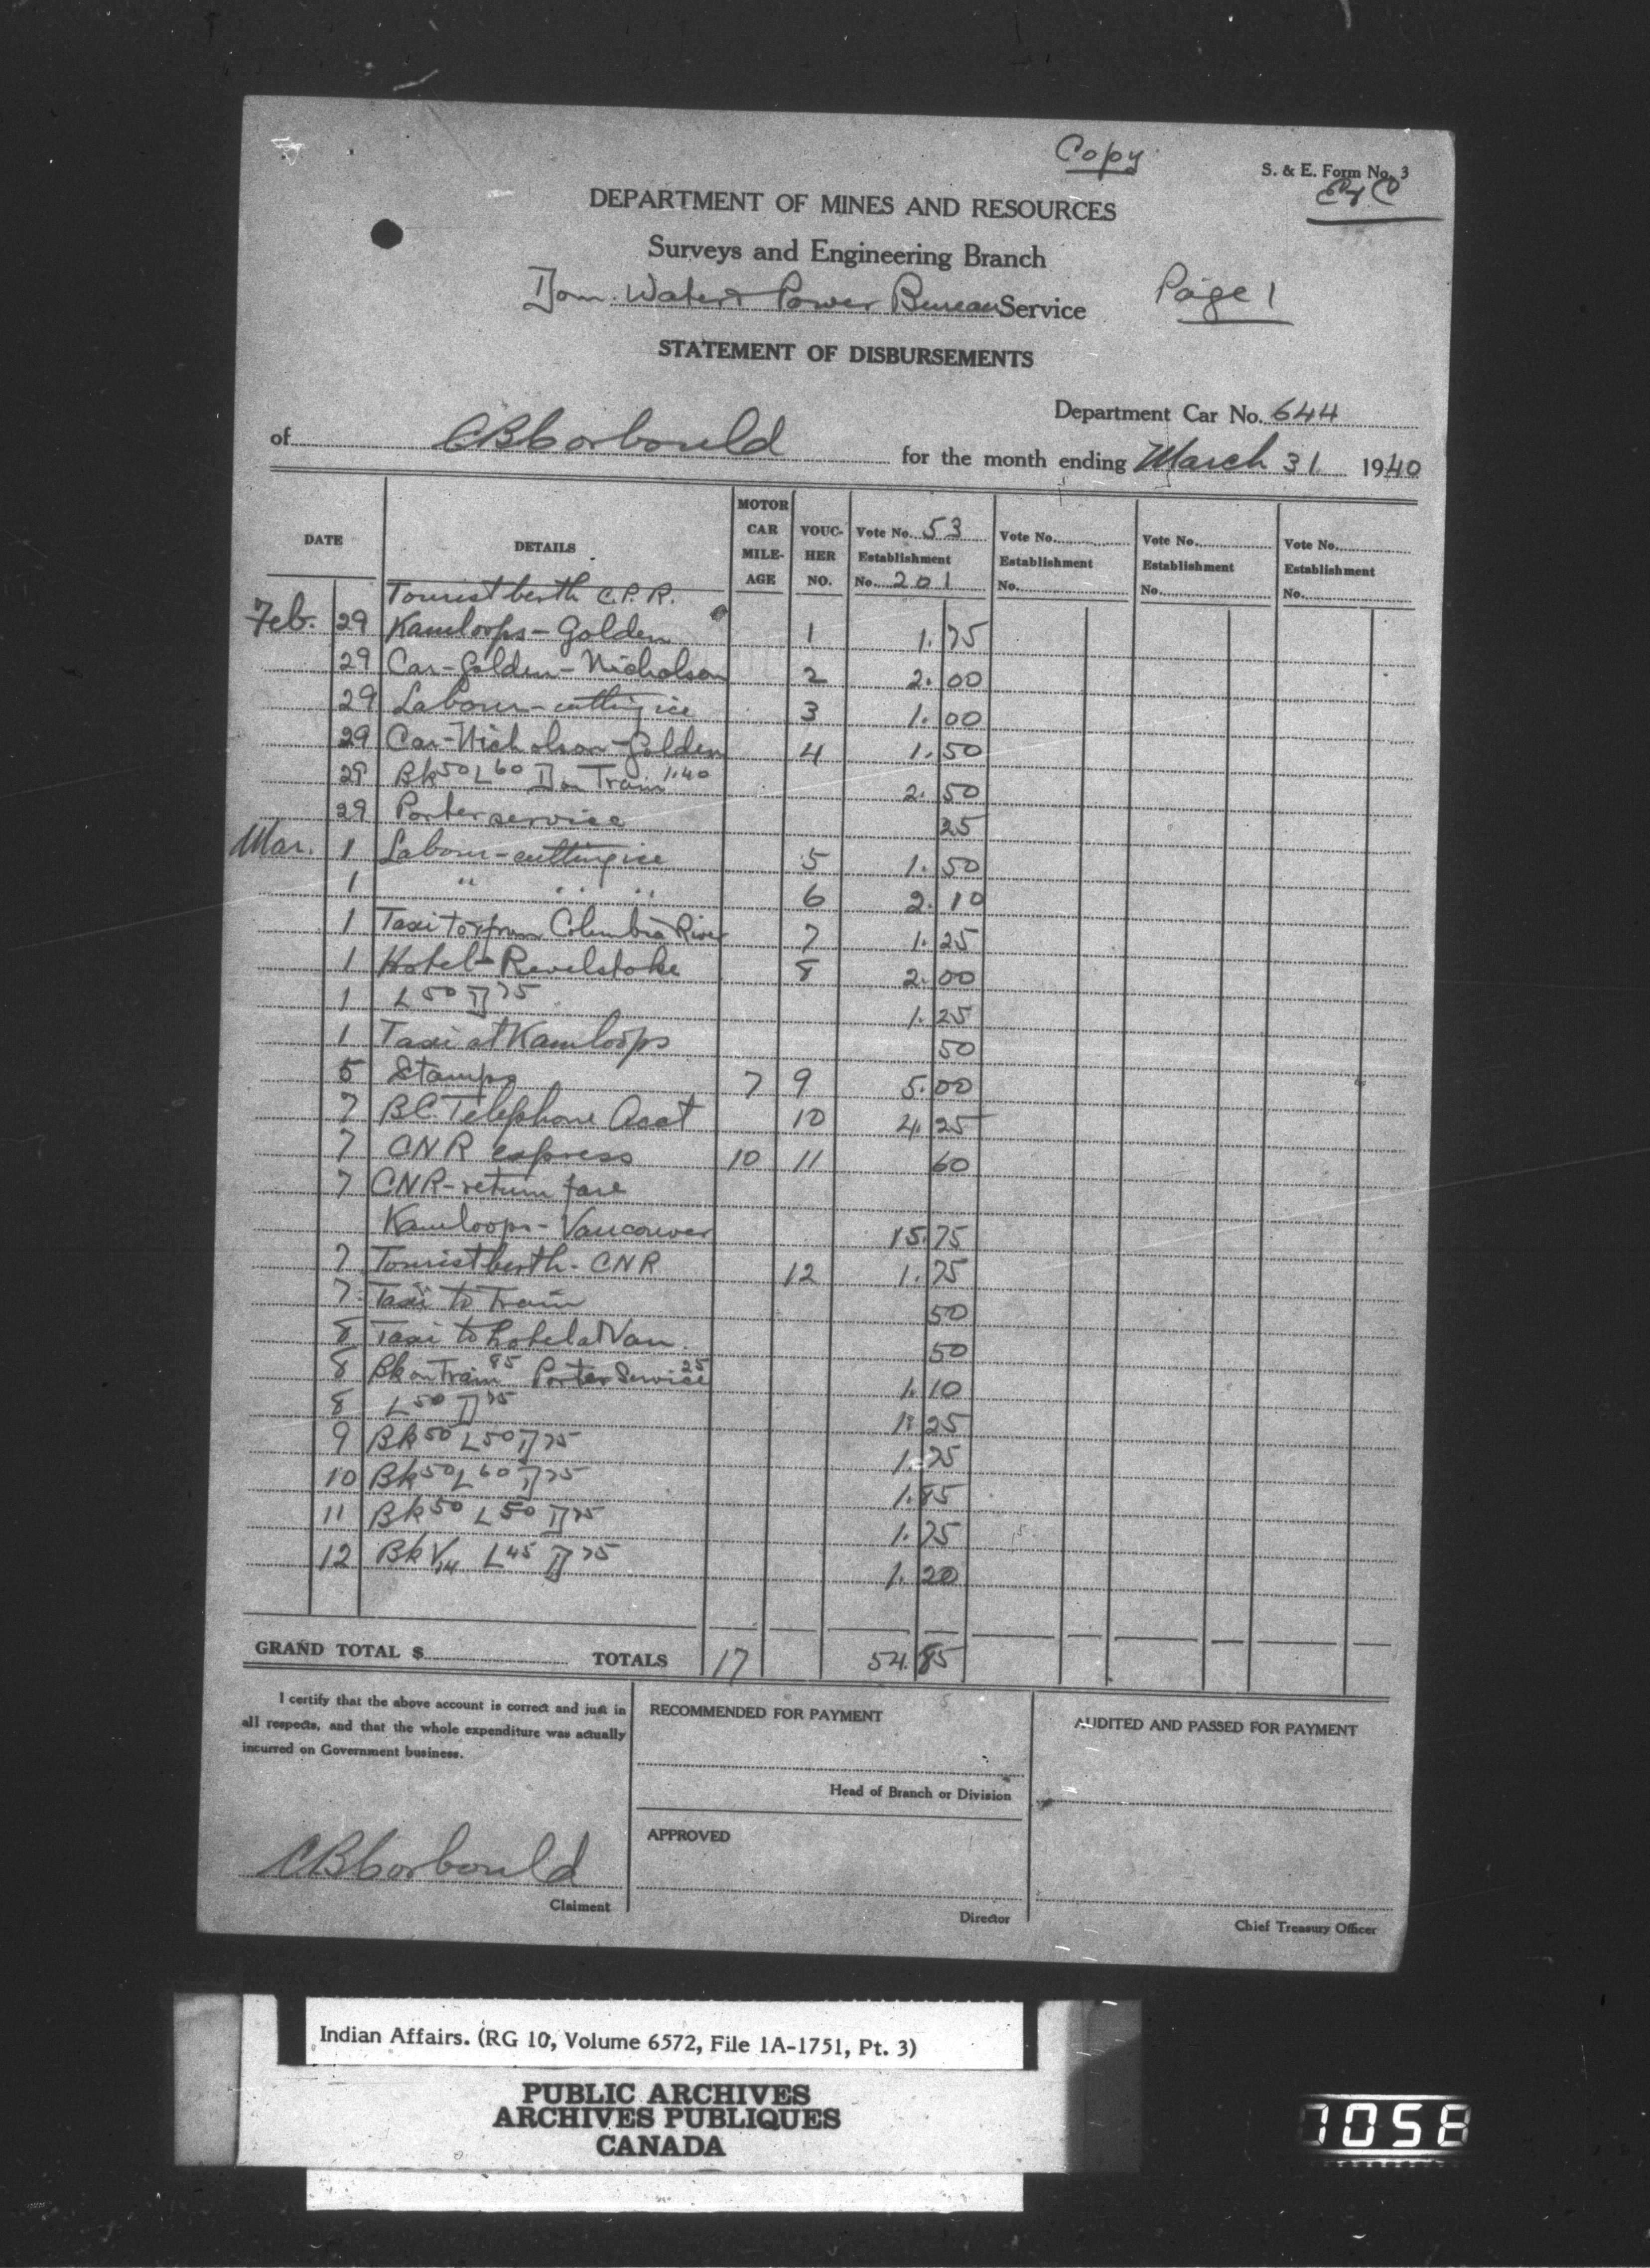 Copy
S. & E. Form No. 3
DEPARTMENT OF MINES AND RESOURCES
Surveys and Engineering Branch
Dom. Water & Power Bureau Service
Page 1
STATEMENT OF DISBURSEMENTS
Department Car No. 644
of C B Corbould for the month ending March 31 1940
DATE DETAILS MOTOR CAR MILE-AGE VOUC-HER NO. Vote No. 53 Establishment No. 201 Vote No. Establishment No. Vote No. Establishment No. Vote No. Establishment No.
Tourist berth C.P.R.
Feb. 29 Kamloops - Golden 1 1.75
29 Car - Golden - Nicholson 2 2.00
29 Labour - cutting ice 3 1.00
29 Car - Nicholson - Golden 4 1.50
29 Bk 50 L 60 D on Train 1.40 2.50
29 Porter service 25
Mar. 1 Labour - cutting ice 5 1.50
1 " " " 6 2.10
1 Taxi to & from Columbia River 7 1.25
1 Hotel - Revelstoke 8 2.00
1 L 50 D 75 1.25
1 Taxi at Kamloops 50
5 Stamps 7 9 5.00
7 B.C. Telephone Acct 10 4.25
7 CNR express 10 11 60
7 CNR - return fare
Kamloops - Vancouver 15.75
7 Tourist berth - CNR 12 1.75
7 Taxi to Train 50
8 Taxi to hotel at Van. 50
8 Bk on Train 85 Porter Service 25 1.10
8 L 50 D 75 1.25
9 Bk 50 L 50 D 75 1.75
10 Bk 50 L 60 D 75 1.85
11 Bk 50 L 50 D 75 1.75
12 Bk L 45 D 75 1.20
GRAND TOTAL $ TOTALS 17 54.85
I certify that the above account is correct and just in
all respects, and that the whole expenditure was actually
incurred on Government business.
C B Corbould
Claiment
RECOMMENDED FOR PAYMENT
Head of Branch or Division
APPROVED
Director
AUDITED AND PASSED FOR PAYMENT
Chief Treasury Officer
Indian Affairs. (RG 10, Volume 6572, File 1A-1751, Pt. 3)
PUBLIC ARCHIVES
ARCHIVES PUBLIQUES
CANADA
7058